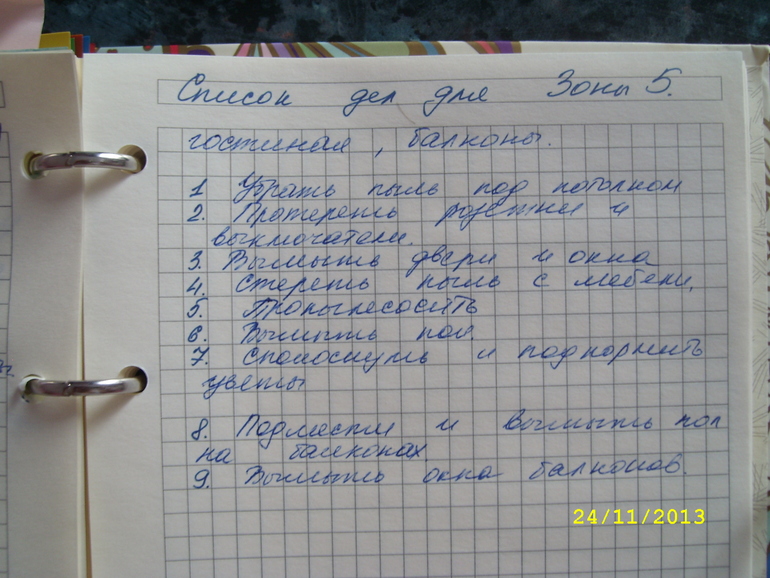 Список дел для Зоны 5.
гостиная, балконы.
1 Убрать пыль под потолком
2. Протереть розетки и
выключатели.
3. Вымыть двери и окна
4. Стереть пыль с мебели.
5. Пропылесосить
6. Вымыть пол.
7. Сполоснуть и подкормить
цветы
8. Подмести и вымыть пол
на балконах
9. Вымыть окна балконов.
24/11/2013